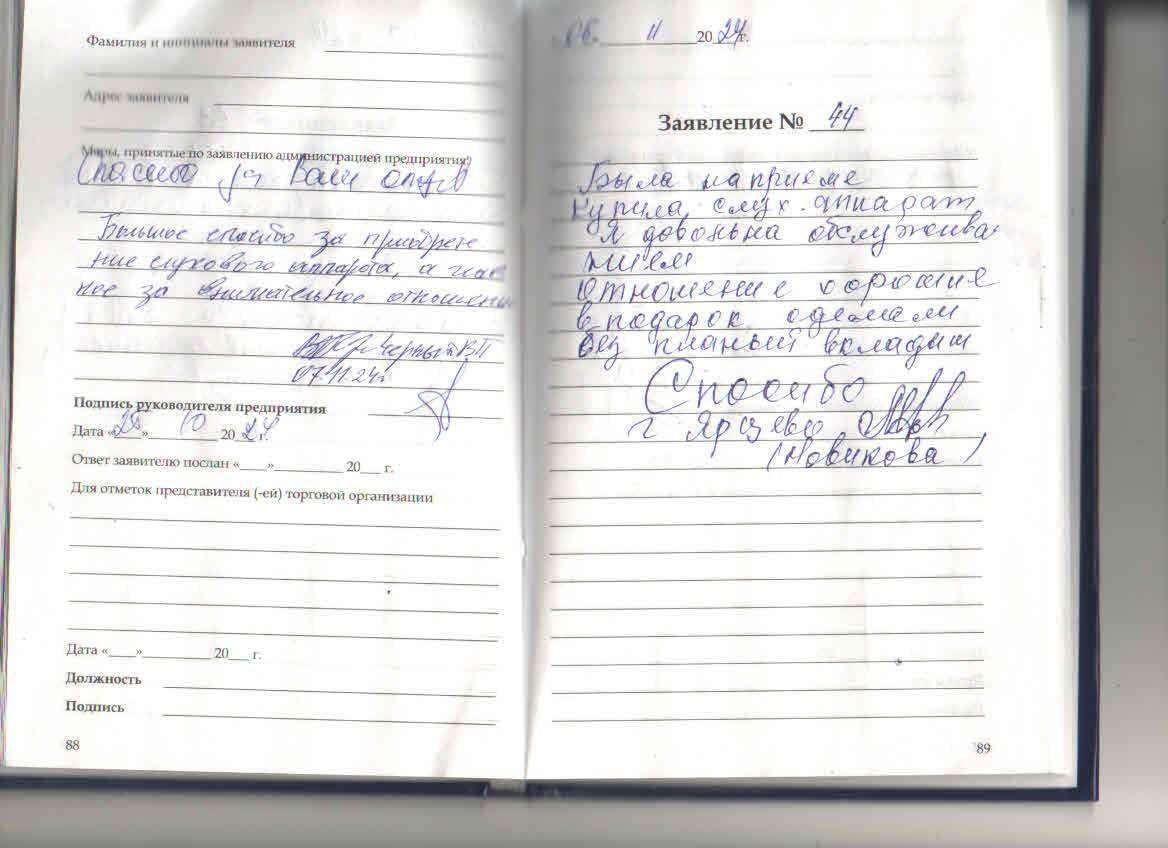 Фамилия и инициалы заявителя
Адрес заявителя
Меры, принятые по заявлению администрацией предприятия:
Спасибо за Ваш
Большое спасибо за приобрете
ние слухового аппарата, а глав
ное за внимательное отношение
Черный ВП
07.11.24г
Подпись руководителя предприятия
Дата «25» 10 2024 г.
Ответ заявителю послан «___»__________ 20___ г.
Для отметок представителя (-ей) торговой организации
Дата «____»__________ 20___ г.
Должность
Подпись
88
06. 11 2024г.
Заявление № 44
Была на приеме
купила слух. аппарат
я довольна обслужива
нием
отношение хорошие
в подарок сделали
без планый вкладыш
Спасибо
г Ярцево
(Новикова)
89